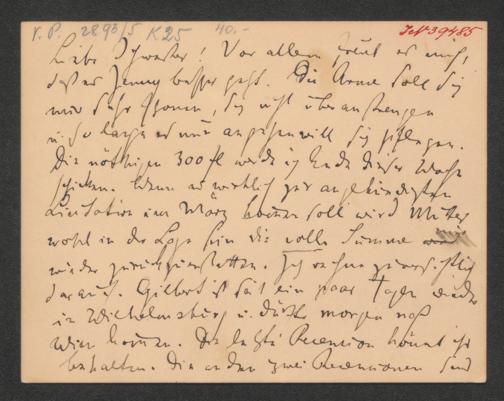 V. P. 2893/5 K25 40.- I.N. 39485
Liebe Schwester! Vor allem freut es mich,
dass es Jenny besser geht. Die Arme soll sich
nur sehr schonen, sich nicht überanstrengen
u. so lange es nur angehen will sich pflegen.
Die nöthigen 300 fl werde ich Ende dieser Woche
schicken. Wenn es wirklich zur angekündigten
Licitation im März kommen soll wird Mutter
wohl in der Lage sein die volle Summe
wieder zurückzuerstatten. Ich rechne zuversichtlich
darauf. Gilbert ist seit ein paar Tagen wieder
in Wilhelmsburg u. dürfte morgen nach
Wien kommen. Die letzte Recension könnt ihr
behalten. Die andern zwei Recensionen sind